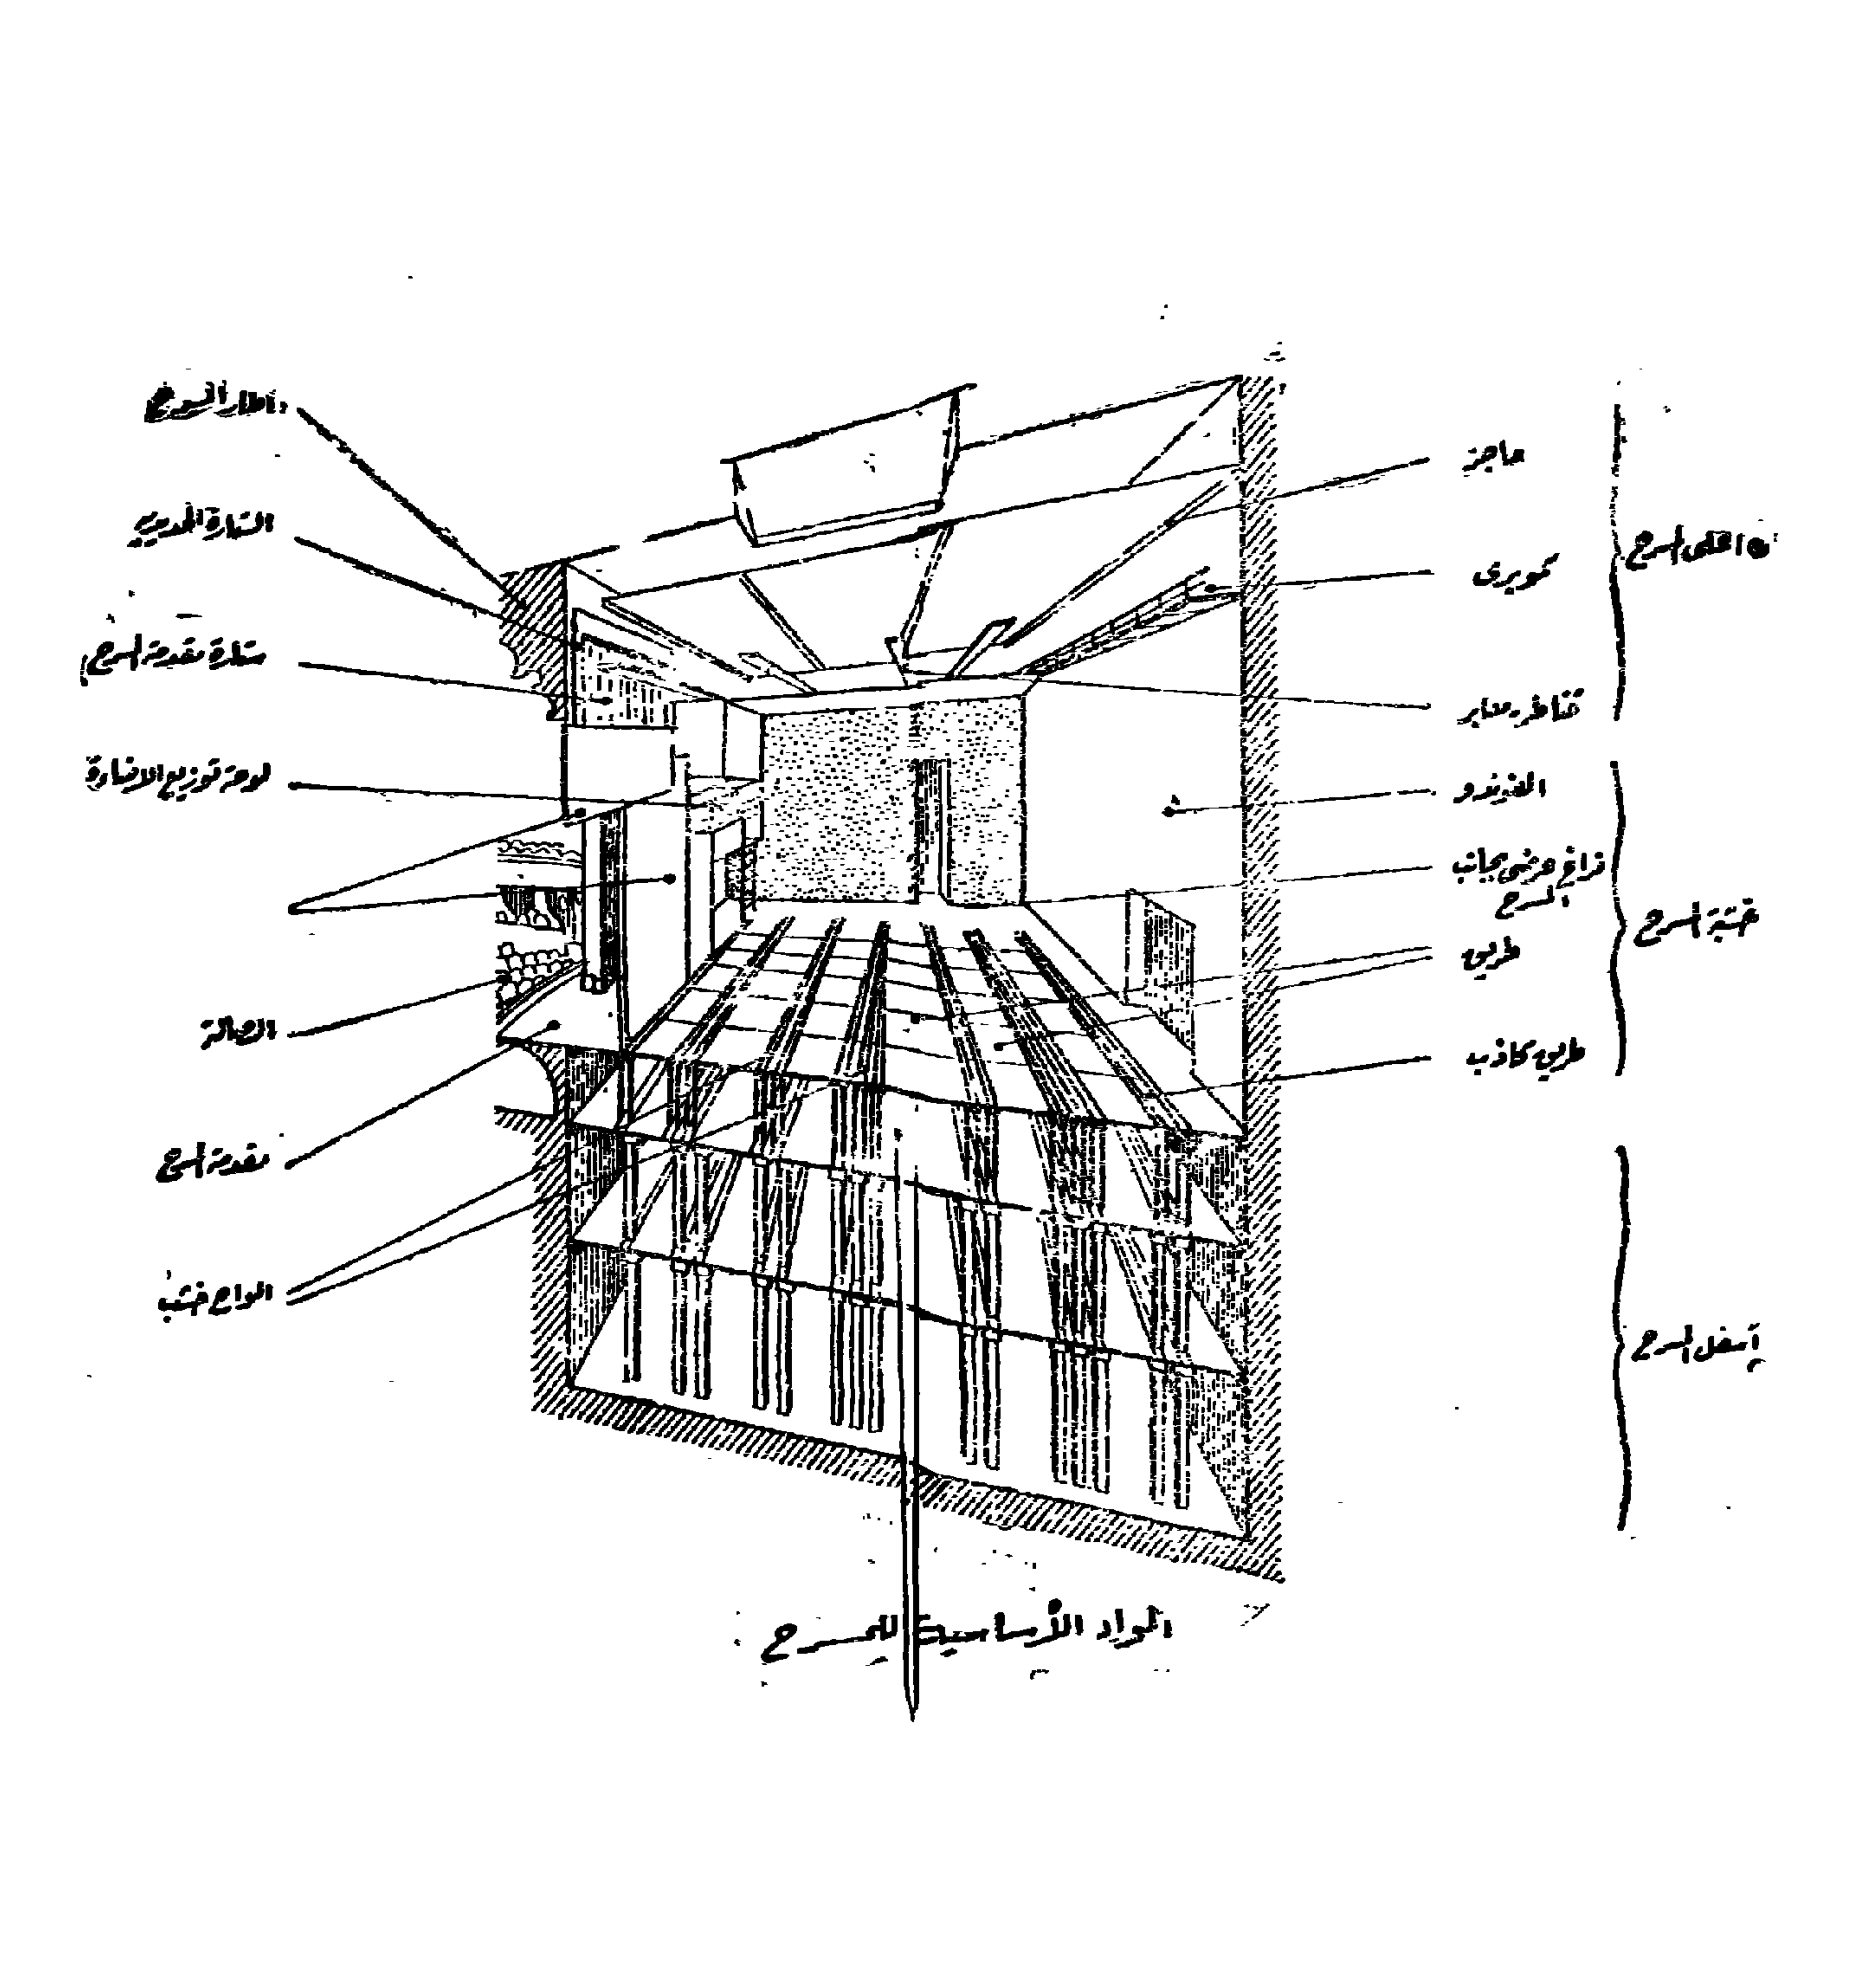 اطار المسرح
الستارة الحديدية
ستارة مقدمة المسرح
لوحة توزيع الاضاءة
الصالة
مقدمة المسرح
الواح خشب
حاجز
كوبرى
قناطر ومعابر
فراغ عرضى بجانب
المسرح
طريق
طريق كاذب
اعلى المسرح
خشبة المسرح
أسفل المسرح
المواد الأساسية للمسرح